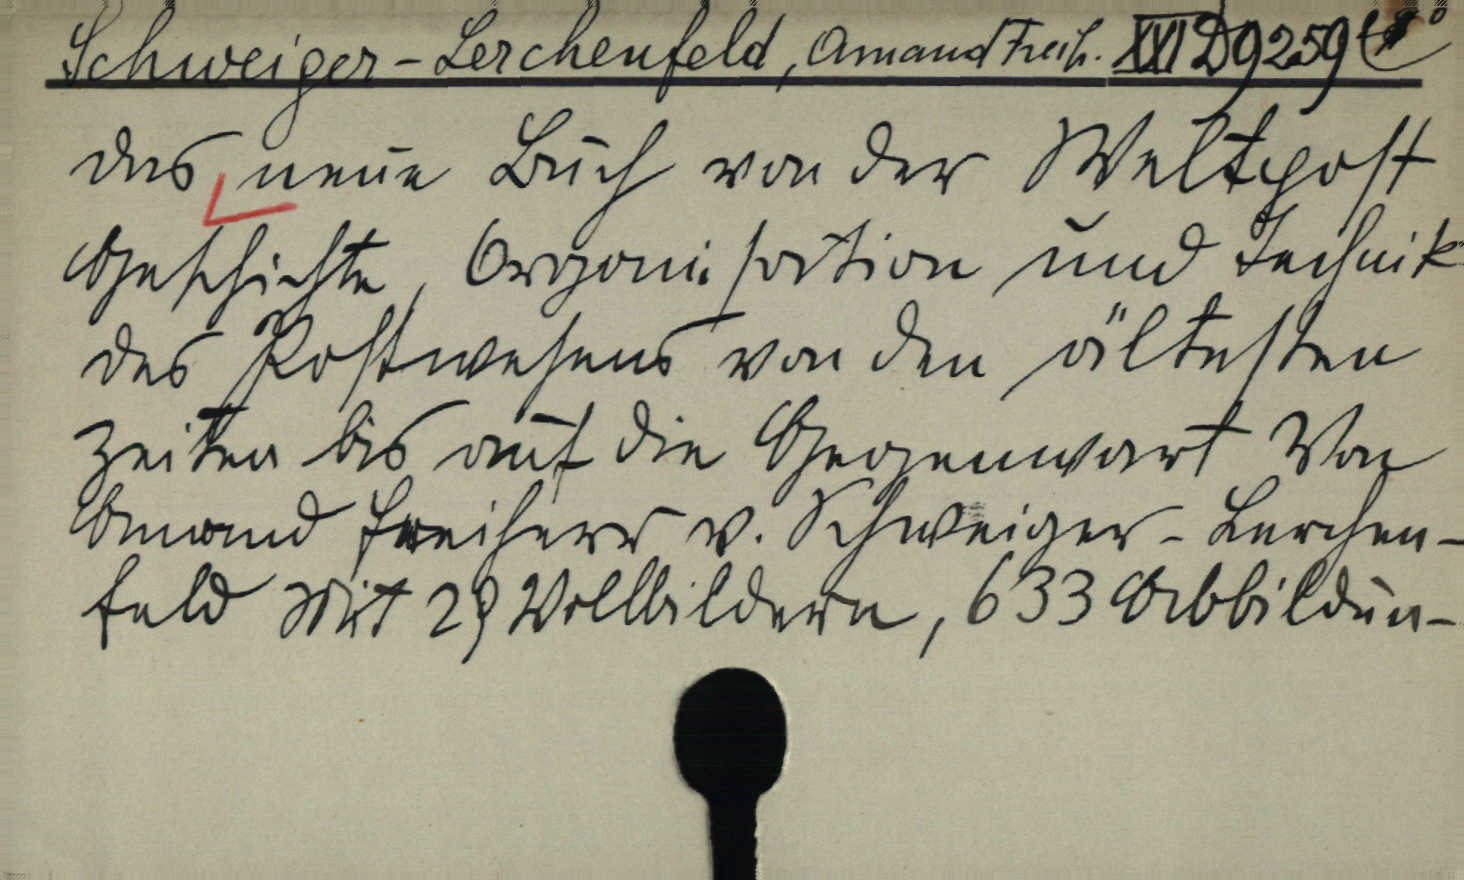 Schweiger-Lerchenfeld, Amand Freih. XXI D 9259
Das neue Buch von der Weltpost
Geschichte, Organisation und Technik
des Postwesens von den ältesten
Zeiten bis auf die Gegenwart Von
Amand Freiherr v. Schweiger-Lerchen-
feld Mit 29 Vollbildern, 633 Abbildun-